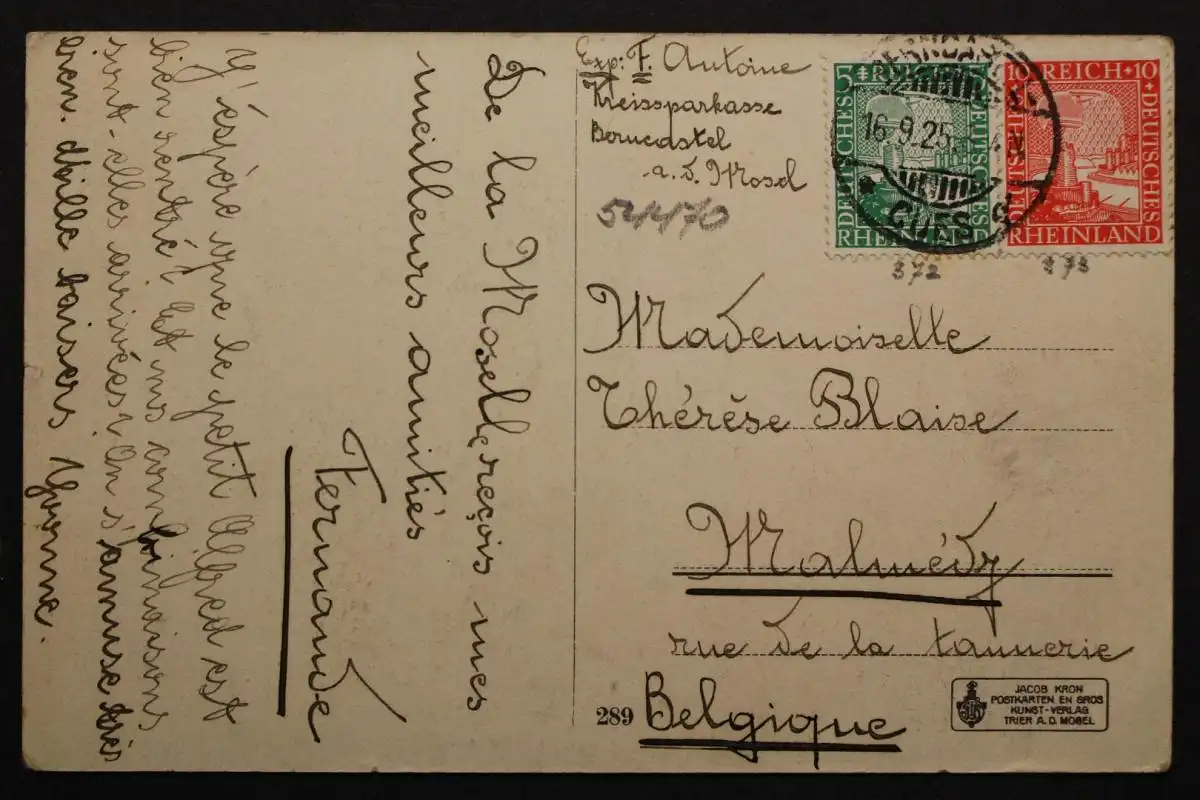 De la Mosel, reçois mes
meilleurs amitiés
Fernande
J'éspère que le petit Alfred est
bien rentré! Et nos combinaisons
sont-elles arrivées? On s'amuse très
bien. Mille baisers Yvonne.
Exp: F. Antoine
Kreissparkasse
Berncastel
a. d. Mosel
54470
5 REICH 5
DEUTSCHES
DEUTSCHES
RHEINLAND
10 REICH 10
DEUTSCHES
DEUTSCHES
RHEINLAND
16.9.25
CUES
372
373
Mademoiselle
Thérèse Blaise
Malmédy
rue de la tannerie
Belgique
289
JACOB KRON
POSTKARTEN EN GROS
KUNST-VERLAG
TRIER A.D. MOSEL